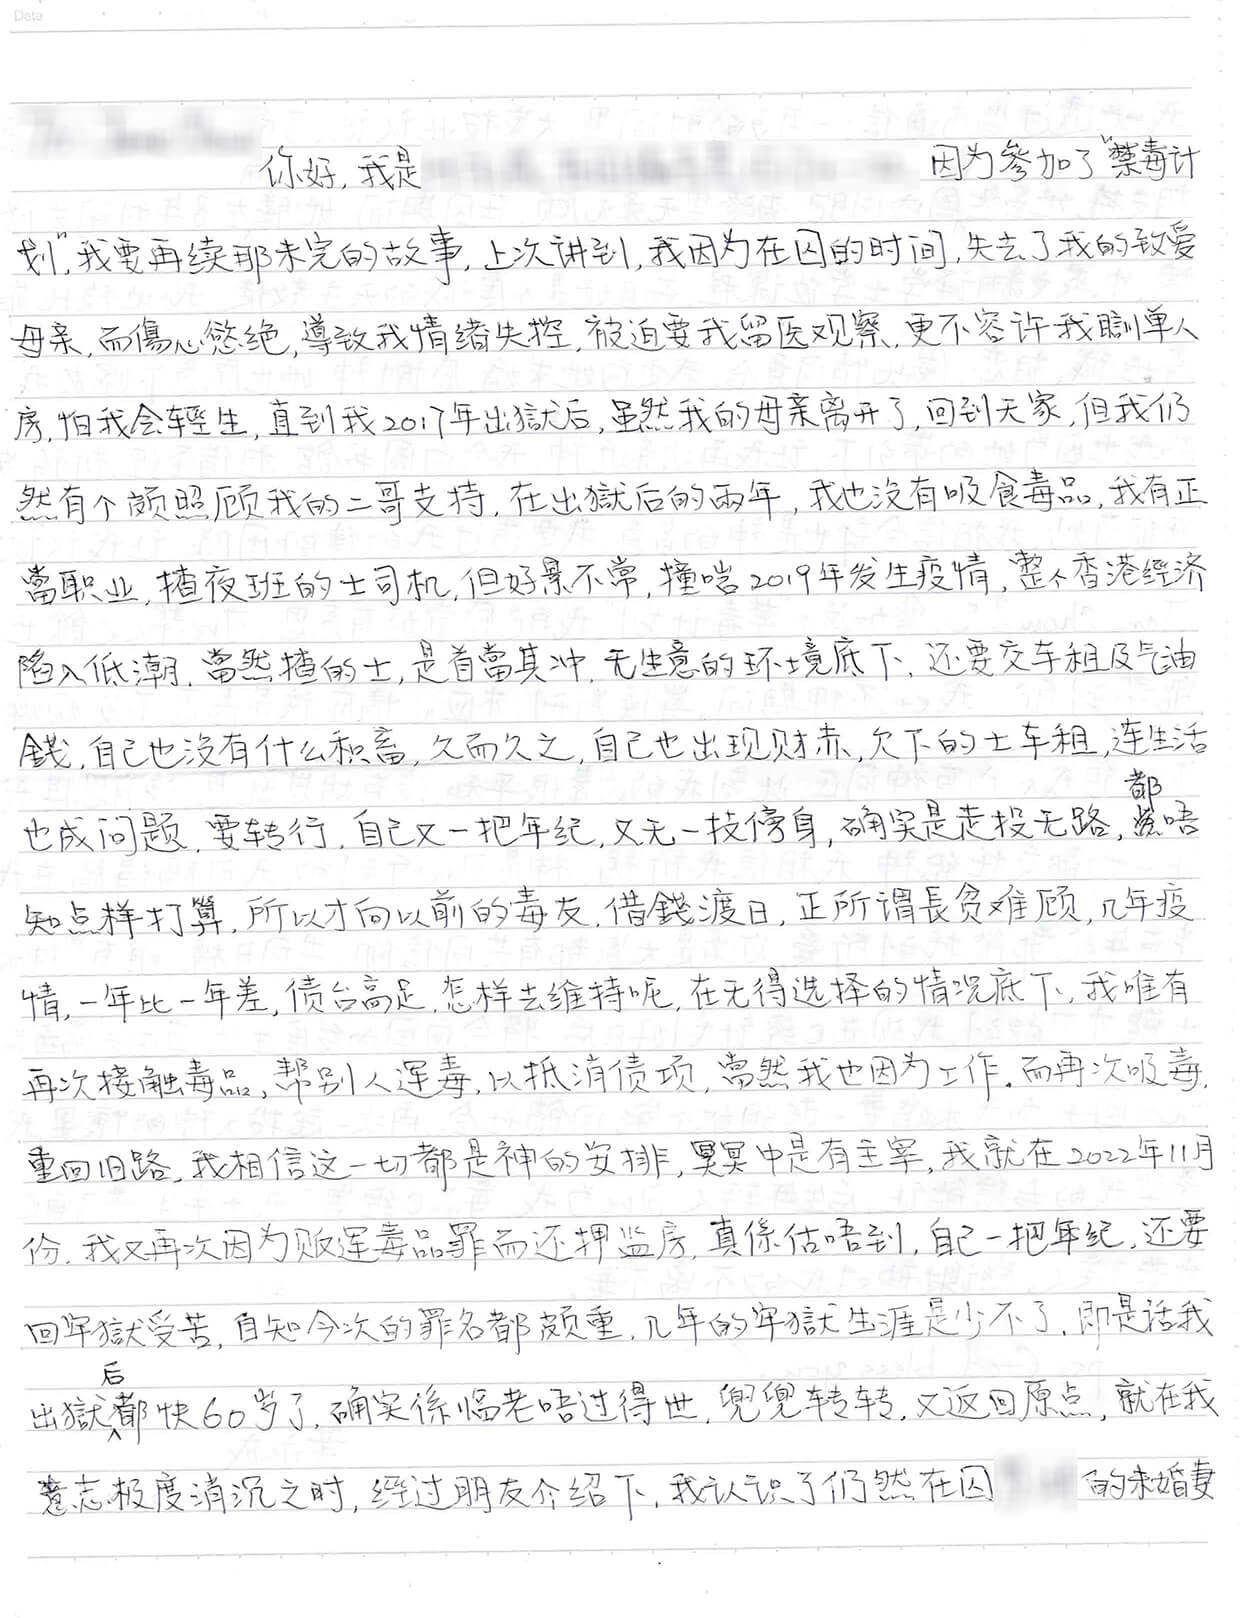 Data
你好, 我是 因为參加了"禁毒计
划", 我要再续那未完的故事, 上次讲到, 我因为在囚的时间, 失去了我的致爱
母亲, 而傷心慾绝, 導致我情绪失控, 被迫要我留医观察, 更不容许我瞓单人
房, 怕我会輕生, 直到我2017年出獄后, 虽然我的母亲离开了, 回到天家, 但我仍
然有个颇照顾我的二哥支持, 在出獄后的兩年, 我也没有吸食毒品, 我有正
當职业, 揸夜班的士司机, 但好景不常, 撞啱2019年发生疫情, 整个香港經济
陷入低潮, 當然揸的士, 是首當其冲, 无生意的环境底下, 还要交车租及气油
錢, 自己也没有什么积畜, 久而久之, 自己也出现财赤, 欠下的士车租, 连生活
也成问题, 要转行, 自己又一把年纪, 又无一技傍身, 确实是走投无路, 都唔
知点样打算, 所以才向以前的毒友, 借錢渡日, 正所谓長贫难顾, 几年疫
情, 一年比一年差, 债台高足, 怎样去维持呢, 在无得选择的情况底下, 我唯有
再次接触毒品, 帮别人运毒, 以抵消债项, 當然我也因为工作, 而再次吸毒,
重回旧路, 我相信这一切都是神的安排, 冥冥中是有主宰, 我就在2022年11月
份, 我又再次因为贩运毒品罪而还押监房, 真係估唔到, 自己一把年纪, 还要
回牢獄受苦, 自知今次的罪名都颇重, 几年的牢獄生涯是少不了, 即是话我
出獄后都快60岁了, 确实係临老唔过得世, 兜兜转转, 又返回原点, 就在我
意志极度消沉之时, 经过朋友介绍下, 我认识了仍然在囚 的未婚妻